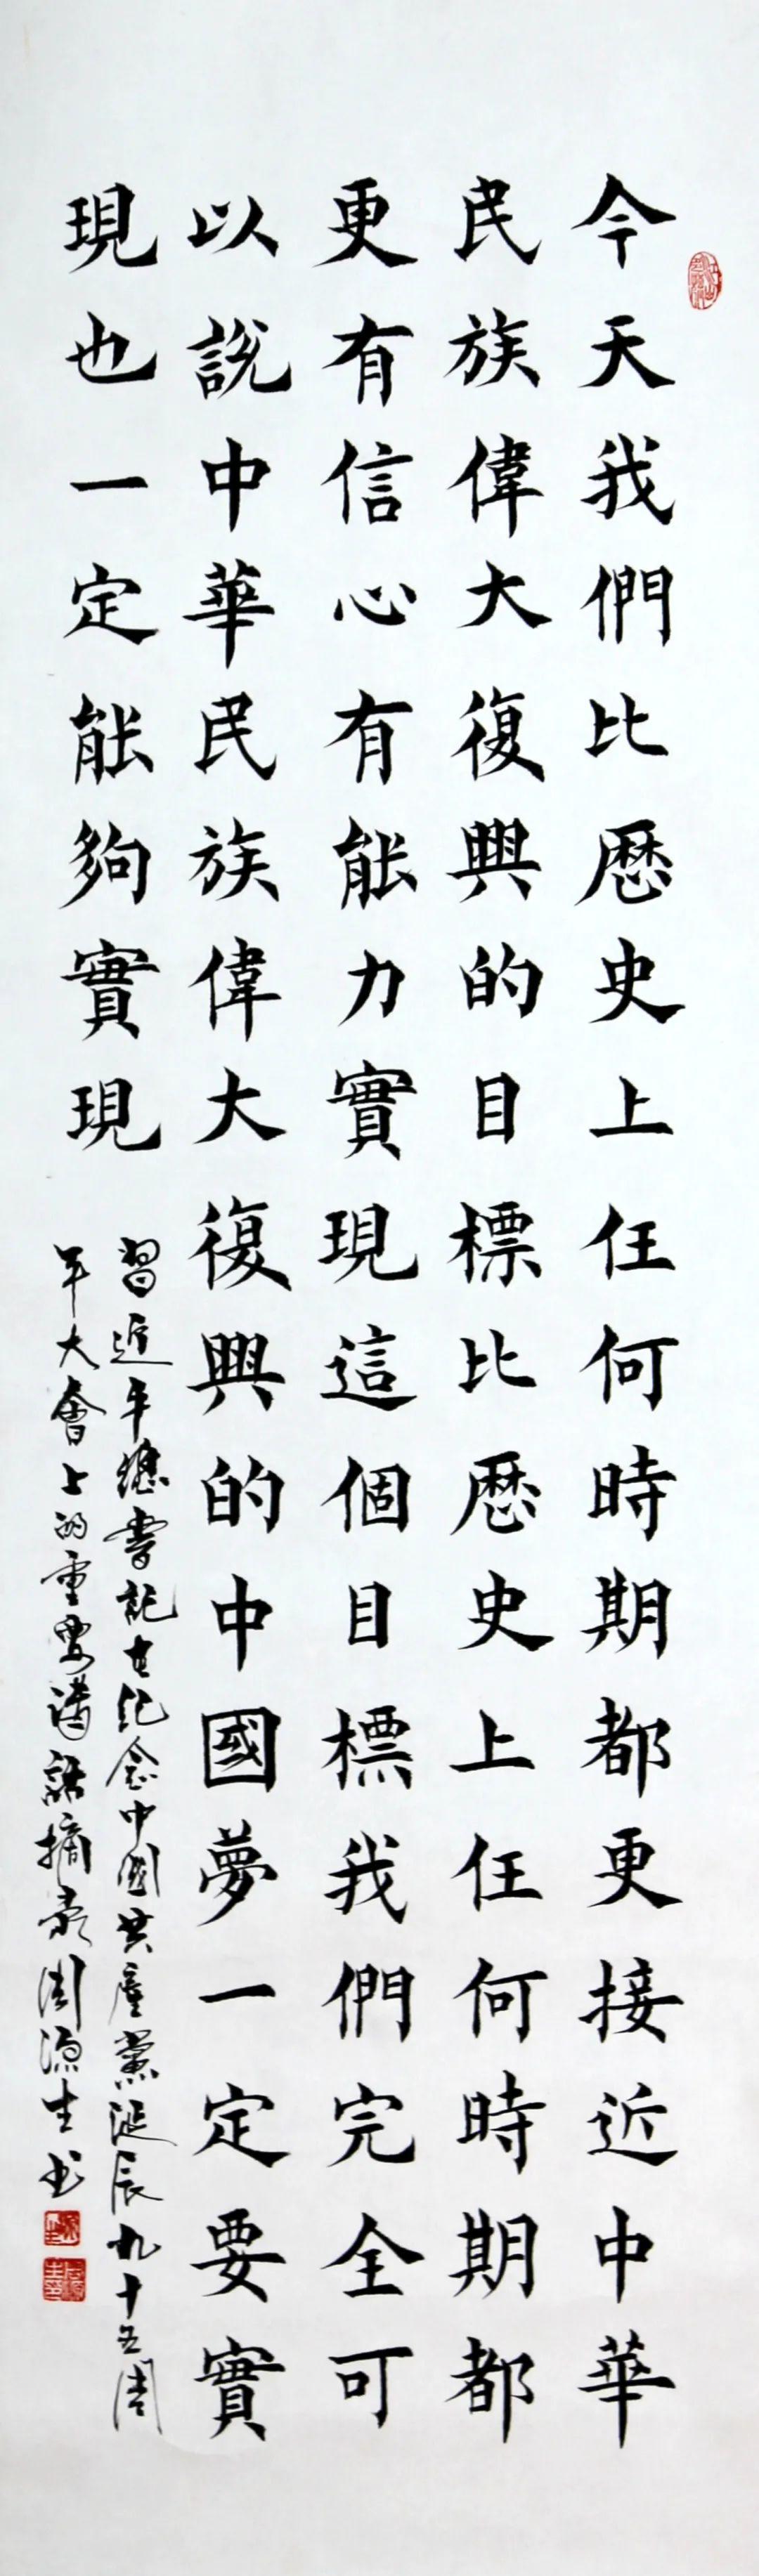 今天我們比歷史上任何時期都更接近中華
民族偉大復興的目標比歷史上任何時期都
更有信心有能力實現這個目標我們完全可
以說中華民族偉大復興的中國夢一定要實
現也一定能夠實現
習近平總書記在紀念中國共產黨誕辰九十五周
年大會上的重要講話摘录周源生书